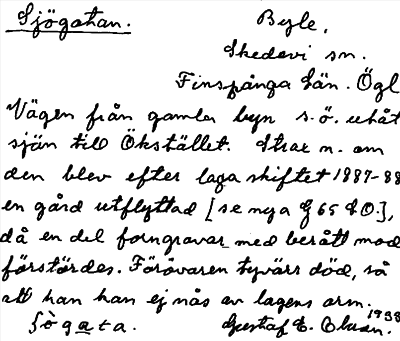 Sjögatan.
Byle,
Skedevi sn.
Finspånga län. Ögl
Vägen från gamla byn s.ö. utåt
sjön till Ökstället. Strax n. om
den blev efter laga skiftet 1887-88
en gård utflyttad [se nya G 65 SO],
då en del forngravar med berått mod
förstördes. Förövaren tyvärr död, så
att han kan ej nås av lagens arm.
sò̀gata. Gustaf E. Olsson. 1938